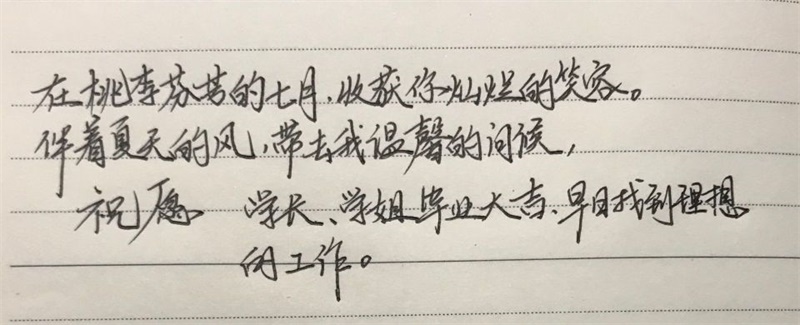 在桃李芬芳的七月，收获你灿烂的笑容。
伴着夏天的风，带去我温馨的问候，
祝愿 学长、学姐毕业大吉、早日找到理想
的工作。